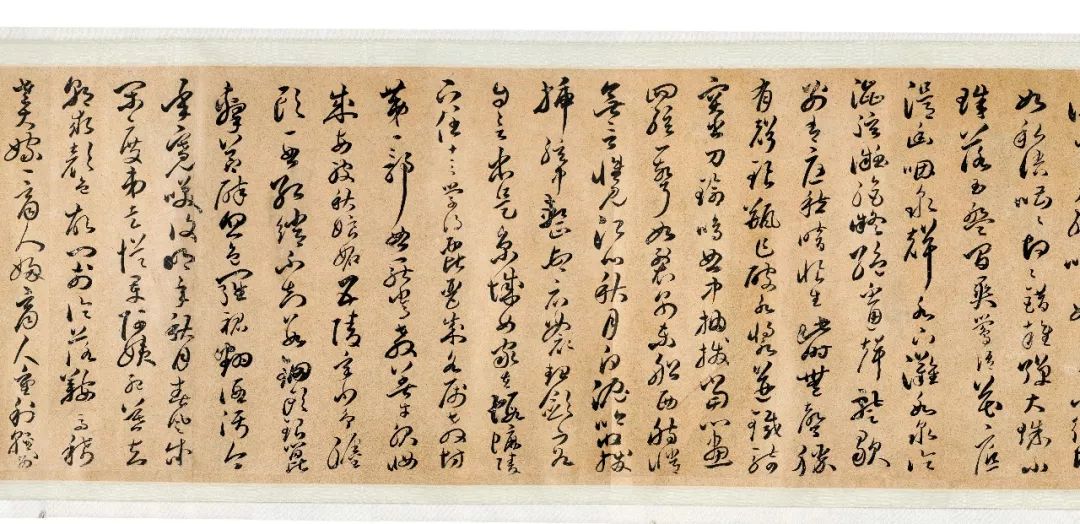 如私語嘈々切々錯雜彈大珠小
珠落玉盤間關鶯語花底
滑幽咽泉聲水下灘水泉冷
澀絃凝絕凝絕聲暫歇
別有暗恨生此時無聲勝
有聲銀瓶乍破水漿迸鐵騎
突出刀鎗鳴曲終抽撥當心畫
四絃一聲如裂帛東船西舫悄
無言惟見江心秋月白沈吟收撥
插絃中整頓衣裳起斂容
自言本是京城女家在蝦蟆陵
下住十三學得琵琶成名屬教坊
第一部曲罷常教善才服妝
成每被秋娘妬五陵年少爭纏
頭一曲紅綃不知數鈿頭銀篦
擊節碎血色羅裙翻酒污今
年歡笑復明年秋月春風等
閑度弟走從軍阿姨死暮去
朝來顏色故門前冷落鞍馬稀
老大嫁作商人婦商人重利輕別